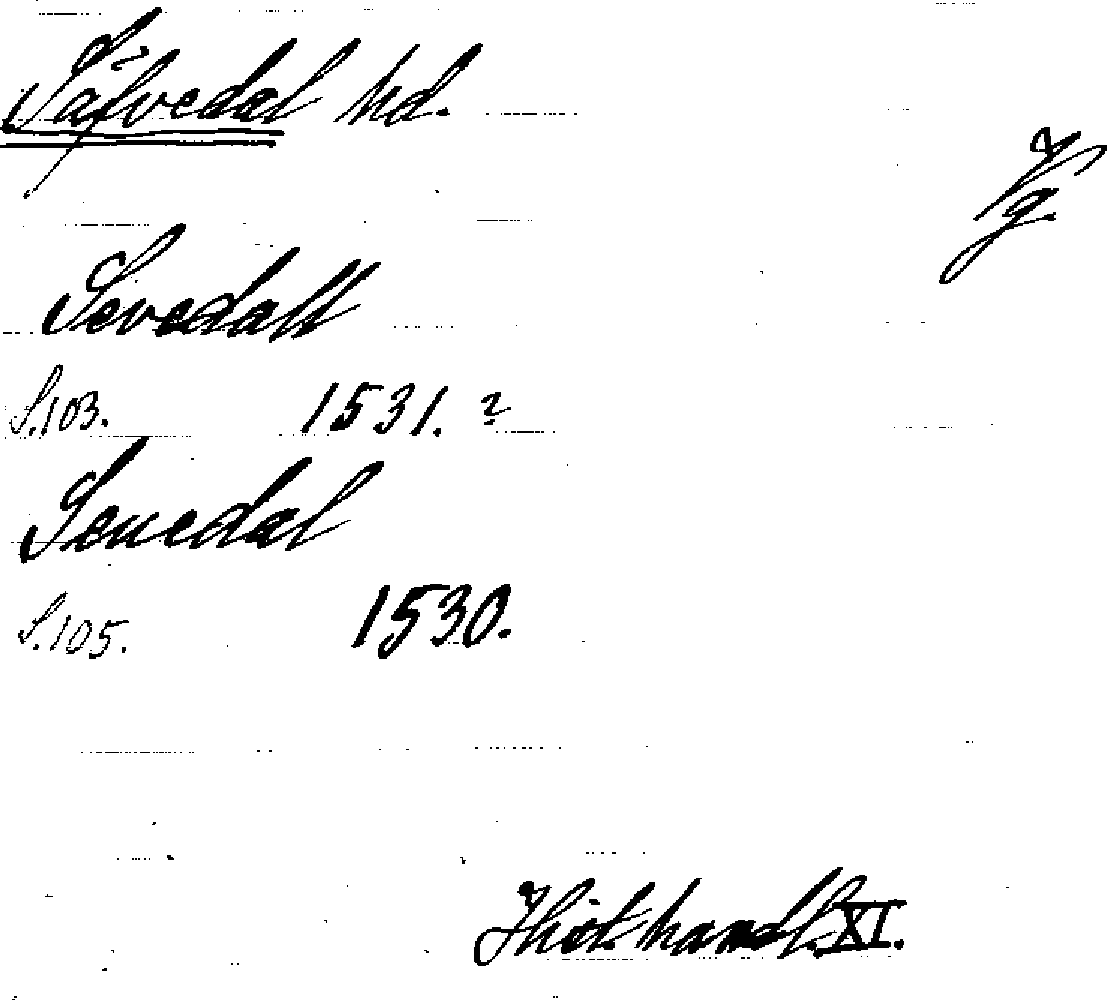 Säfvedal hd.
Vg.
Sevedall
S.103. 1531. ?
Seuedal
S.105. 1530.
Hist. handl. XI.